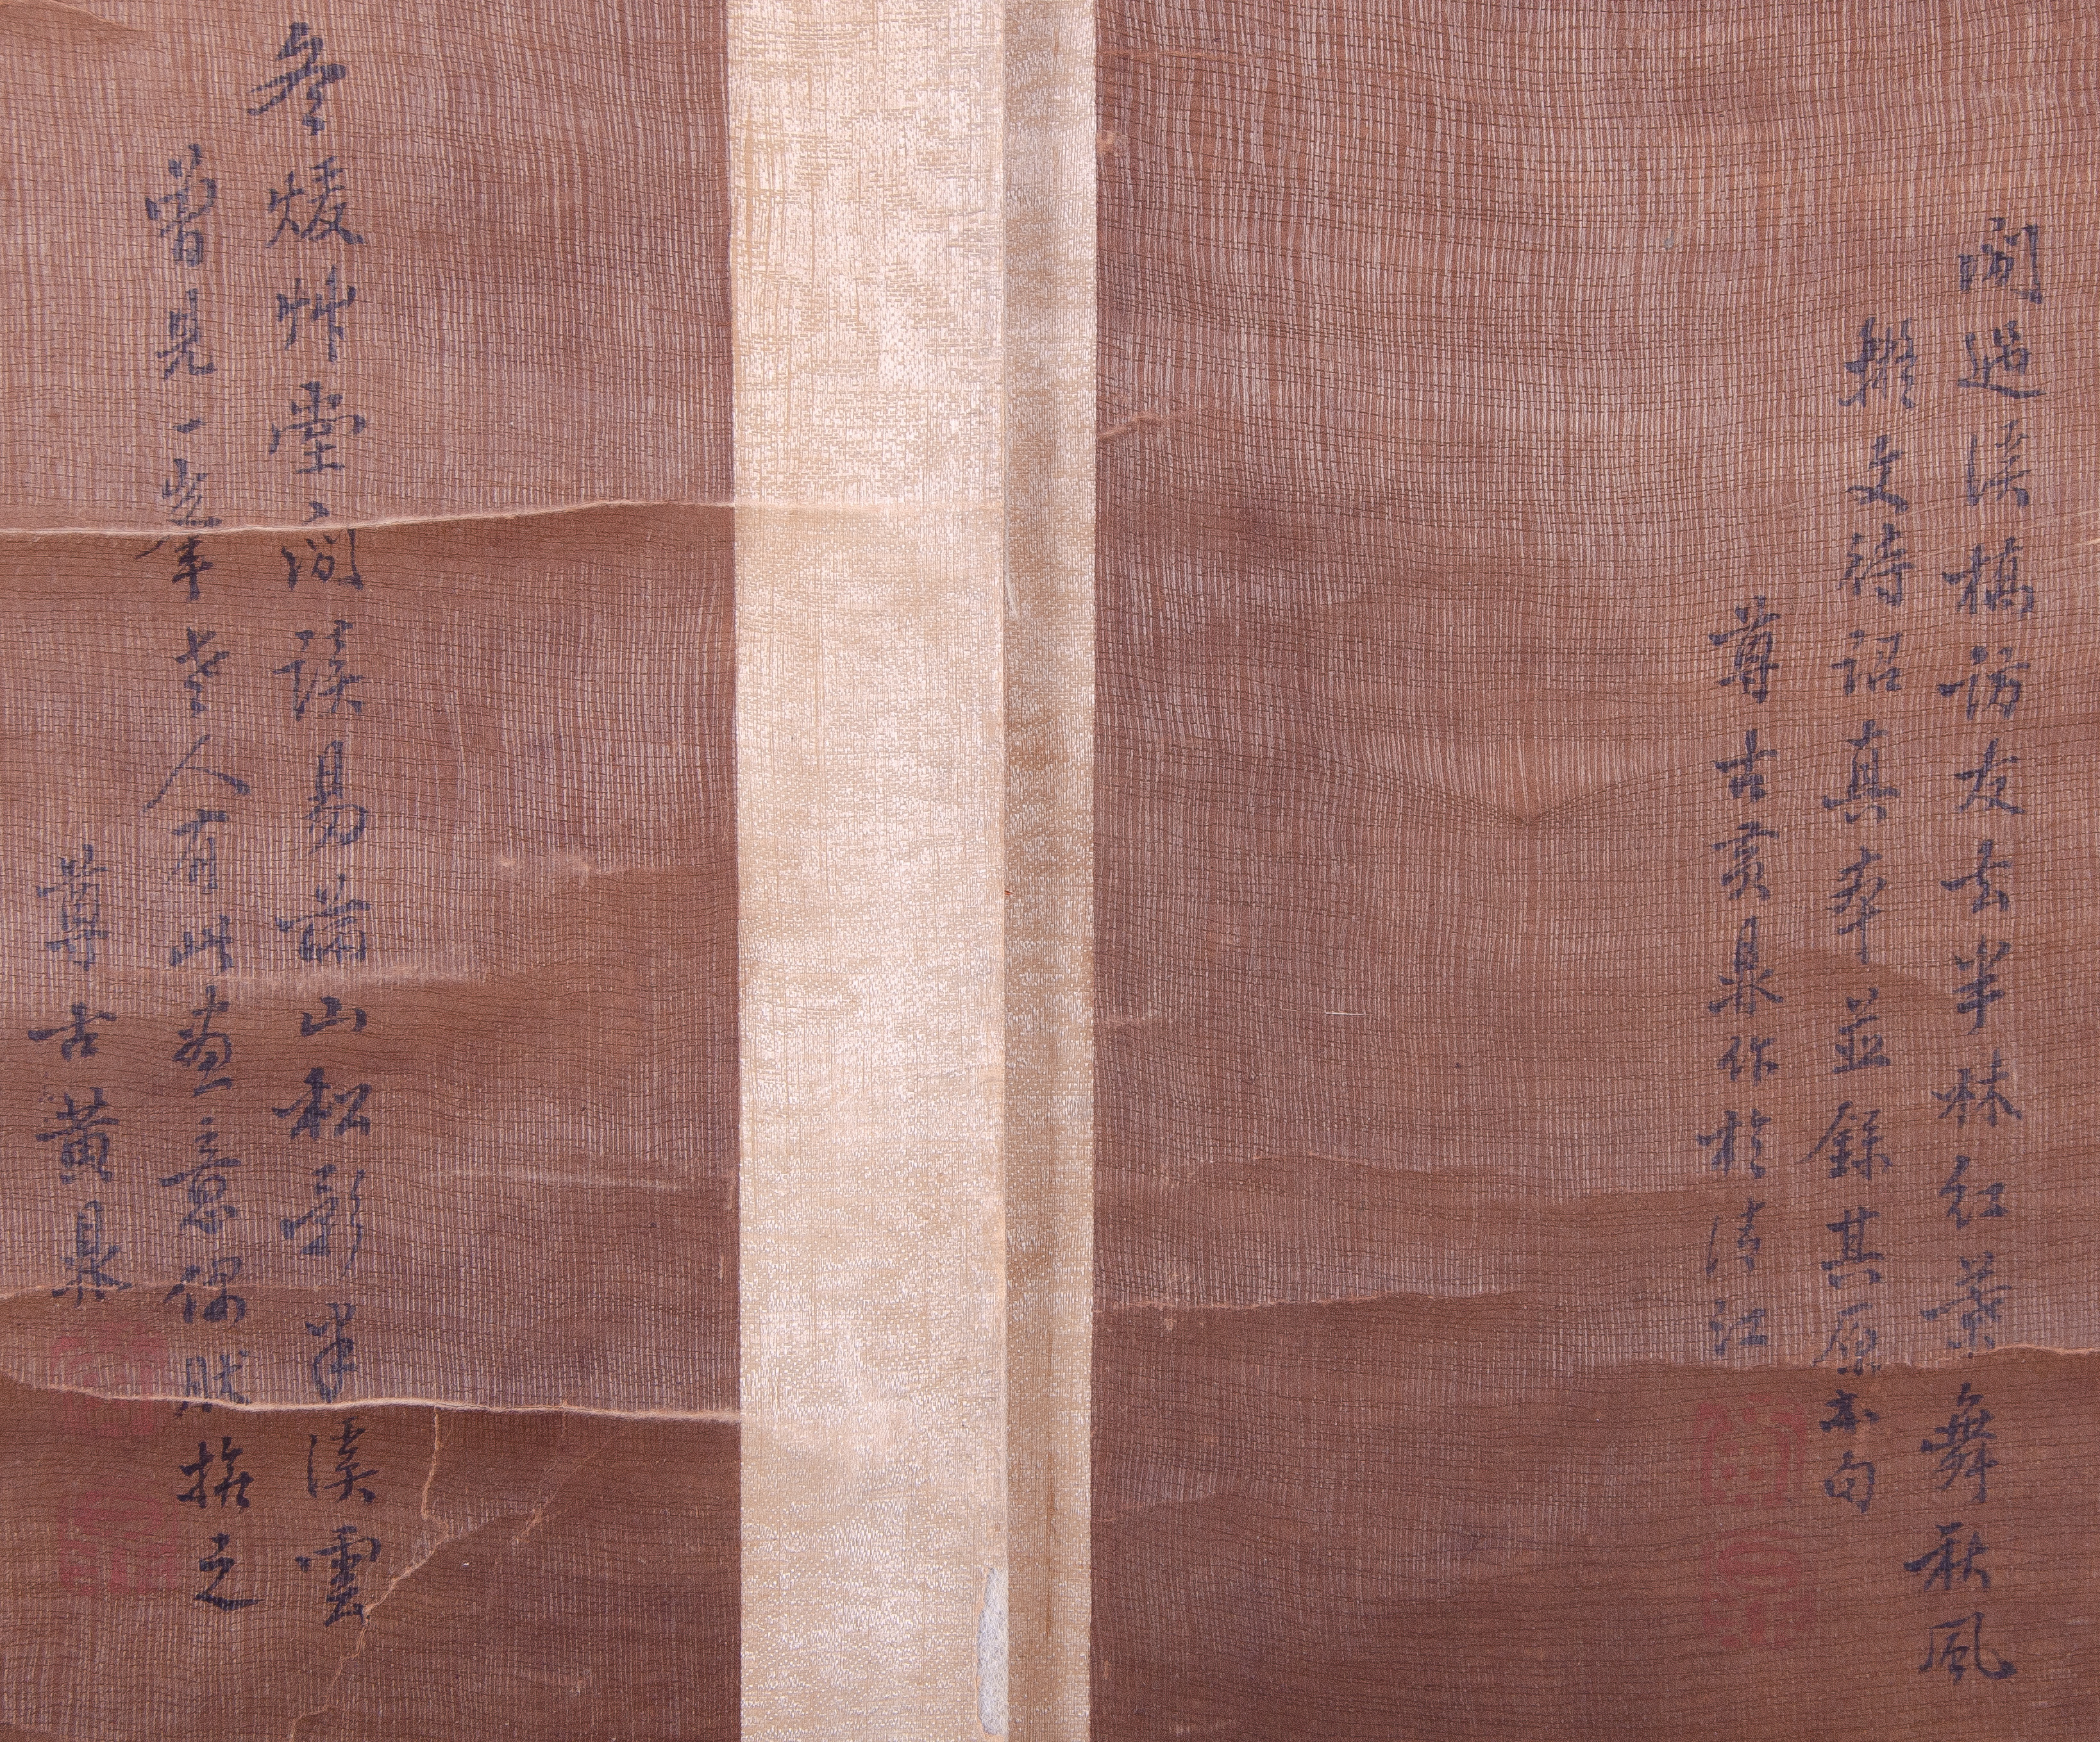 閒過溪橋訪友去半林紅葉舞秋風
擬文待詔真本並錄其原句
尊古黃鼎作於清江
冬煖艸堂閒讀易萧山松影半溪雲
曾見一峯老人有此畫意偶然擬之
尊古黃鼎